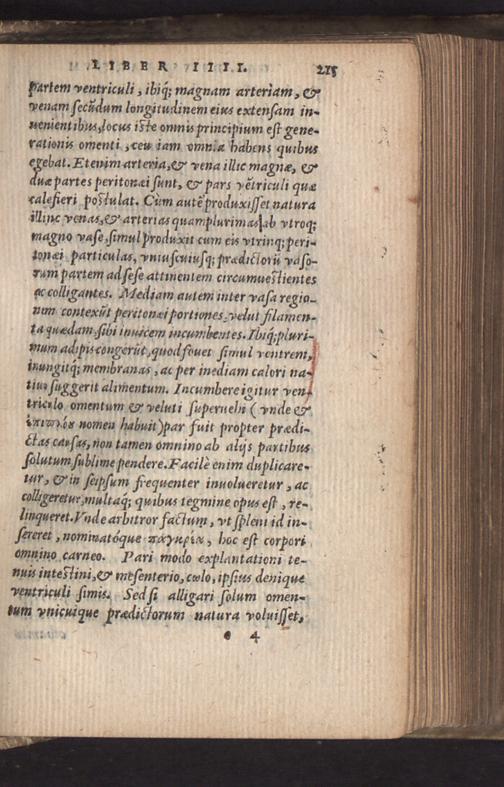 LIBER IIII. 215
partem ventriculi, ibiq; magnam arteriam, &
venam secũdum longitudinem eius extensam in-
uenientibus, locus iste omnis principium est gene-
rationis omenti, ceu iam omnia habens quibus
egebat. Etenim arteria, & vena illic magnæ, &
duæ partes peritonæi sunt, & pars vẽtriculi quæ
calefieri postulat. Cùm autẽ produxisset natura
illinc venas, & arterias quamplurimas ab vtroq;
magno vase, simul produxit cum eis vtrinq; peri-
tonæi particulas, vniuscuiusq; prædictorũ vaso-
rum partem ad sese attinentem circumuestientes
ac colligantes. Mediam autem inter vasa regio-
num contexũt peritonæi portiones, velut filamen-
ta quædam sibi inuicem incumbentes. Ibiq; pluri-
mum adipis congerũt, quod fouet simul ventrem,
inungitq; membranas, ac per inediam calori na-
tiuo suggerit alimentum. Incumbere igitur ven-
triculo omentum & veluti superuehi (vnde &
ἐπιπλόου nomen habuit) par fuit propter prædi-
ctas causas, non tamen omnino ab alijs partibus
solutum sublime pendere. Facilè enim duplicare-
tur, & in seipsum frequenter inuolueretur, ac
colligeretur, multaq; quibus tegmine opus est, re-
linqueret. Vnde arbitror factum, vt spleni id in-
sereret, nominatóque πάγκρεα, hoc est corpori
omnino carneo. Pari modo explantationi te-
nuis intestini, & mesenterio, cœlo, ipsius denique
ventriculi simis. Sed si alligari solum omen-
tum vnicuique prædictorum natura voluisset,
e 4